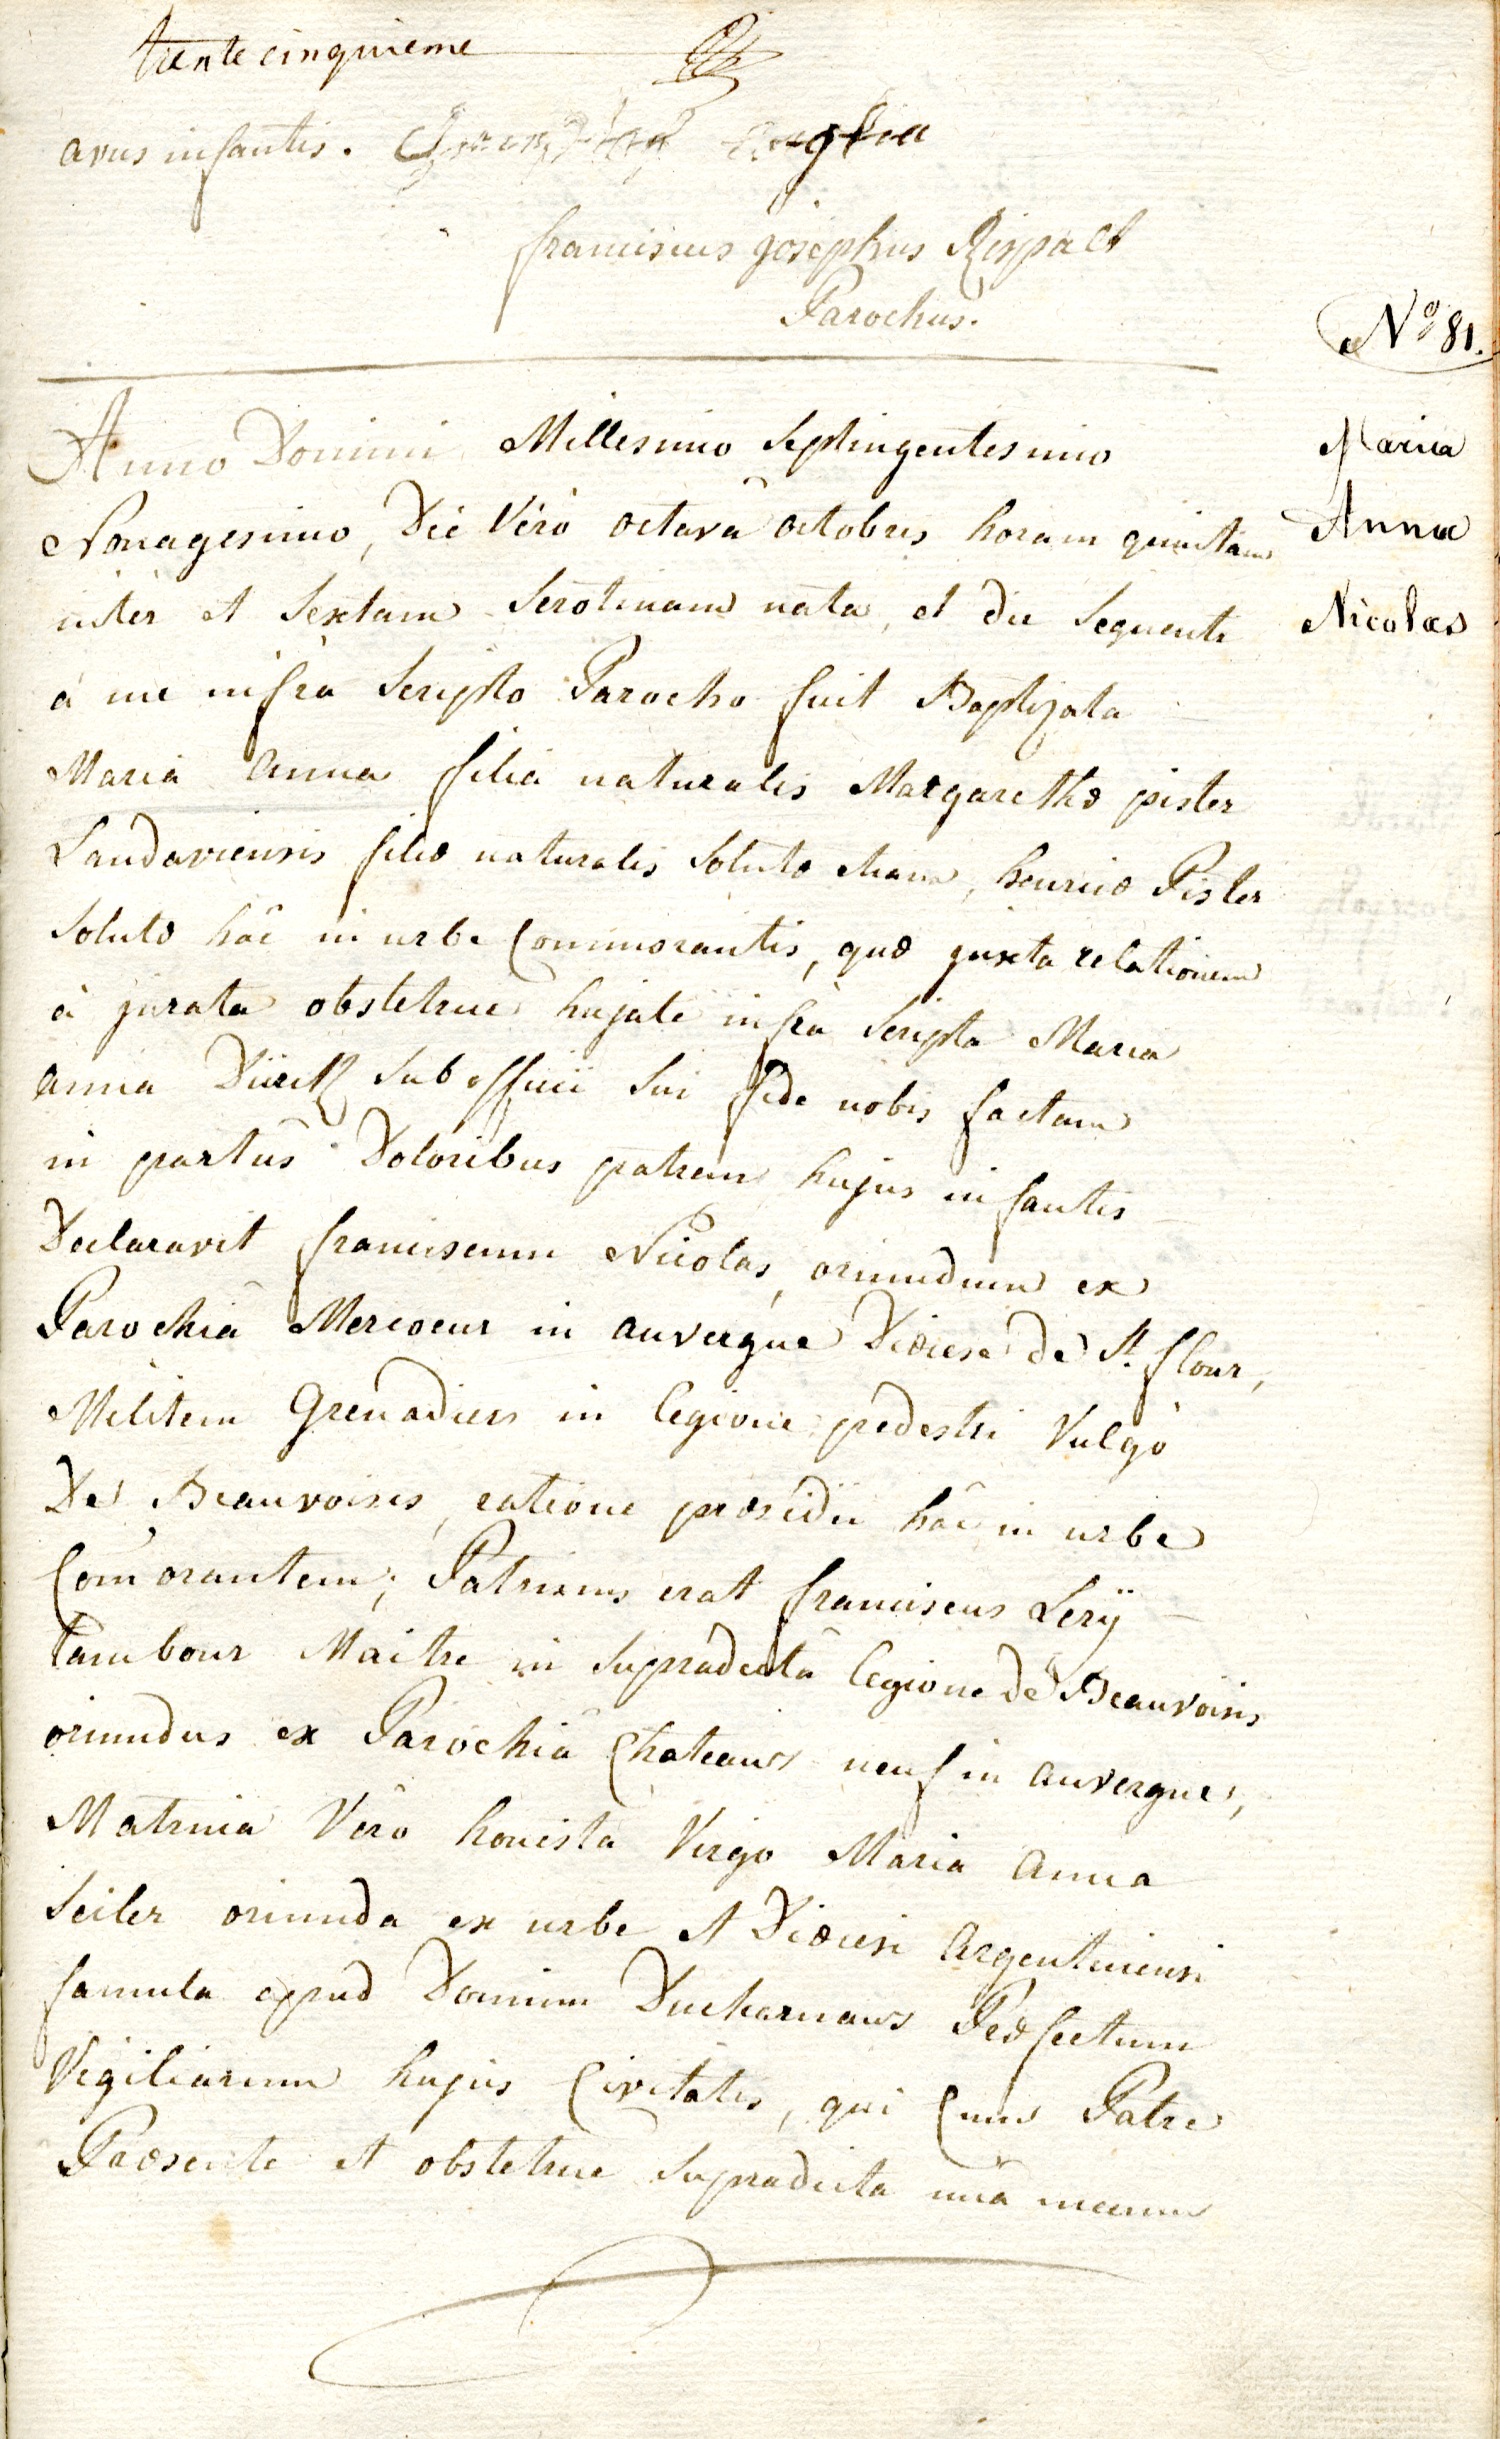 trente cinquieme
avus infantis.
franciscus josephus Rispact
Parochus.
Nº 81.
Anno Domini Millesimo Septingentesimo
Nonagesimo, Die Vero octavâ octobris horam quintam
inter et Sextam Serotinam nata, et die Sequente
à me infra Scripto Parocho fuit Baptizata
Maria Anna filia naturalis Margarethæ pister
Landaviensis filiæ naturalis Solutæ henricæ Pister
Solutæ hâc in urbe Commorantis, quæ juxta relationem
à jurata obstetrice hujate infra Scripta Maria
anna Dürck Sub officii Sui fide nobis factam
in partûs Doloribus patrem hujus infantis
Declaravit franciscum Nicolas, oriundum ex
Parochiâ Mercoeur in auvergne Diœcese de St. flour,
Militem Grenadiers in legione pedestri Vulgò
De Beauvoisis, ratione præsidii hâc in urbe
Com̄orantem; Patrinus erat franciscus Lerÿ
tambour Maitre in Supradictâ legione de Beauvoisis
oriundus ex Parochiâ Chateaux neuf in auvergne,
Matrina Vero honesta Virgo Maria Anna
Seiler oriunda ex urbe et Diœcesi Argentinensi
famula apud Dominum Ducharnaux Præfectum
Vigiliarum hujus Civitatis, qui Cum Patre
Præsente et obstetrice Supradicta unâ mecum
Maria
Anna
Nicolas